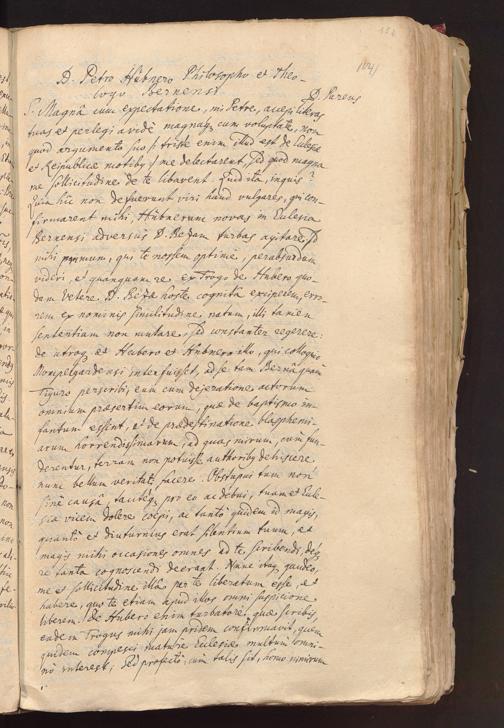 D. Petro Hübnero Philosopho et Theo-
logo Bernensi.
D. Pareus
S. Magnâ cum expectatione, mi Petre, accepi literas
tuas et perlegi avidè magnaq; cum voluptate, non
quod argumento suo (triste enim illud est de Ecclesiæ
et Reipublicæ motibus) me delectarent, sed quod magna
me sollicitudine de te liberarent. Quid ita, inquis?
Quia hîc non defuerunt viri haud vulgares, qui con-
firmarent mihi, Hübnerum novas in Ecclesia
Bernensi adversus D. Bezam turbas agitare. Id
mihi primum, qui te nossem optimè, perabsurdum
videri, et quanquam re ex Trogo de Hubero quo-
dam vetere D. Bezæ hoste cognita exciperem, erro-
rem ex nominis similitudine natum, illi tamen
sententiam non mutare, sed constanter regerere:
de utroq; et Hubero et Hübnero illo, qui colloquio
Mompelgardensi interfuisset, ad se tam Bernâ quam
Tiguro perscribi, eum cum dejeratione actorum
omnium præsertim eorum, quæ de baptismo in-
fantum essent, et de prædestinatione blasphemi-
arum horrendissimarum, ad quas mirum, cum fun-
derentur, terram non potuisse authoribus dehiscere,
nunc bellum veritati facere. Obstupui tum non
sine causâ, tacitèq; pro eo ac debui, tuam et Eccle-
siæ vicem dolere coepi, ac tantò quidem id magis,
quantò et diuturnius erat silentium tuum, et
magis mihi occasiones omnes ad te scribendi, deq;
re tanta cognoscendi deerant. Nunc itaq; gaudeo,
me et sollicitudine illâ per te liberatum esse, et
habere, quo te etiam apud illos omni suspicione
liberem. De Hubero enim turbatore, quæ scribis,
eadem Trogus mihi jam pridem confirmavit, quem
quidem compesci maturè Ecclesiæ multum omni-
nò interest; Sed profectò, cum talis sit, homo nimirum